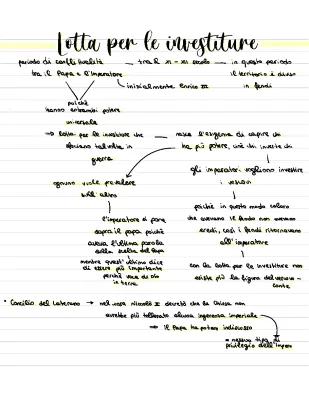 Lotta per le investiture
periodo di conflittualità — tra l' XI - XII secolo — in questo periodo
tra il Papa e l'imperatore
il territorio è diviso
in feudi
inizialmente Enrico III
poiché
hanno entrambi potere
universale
→ lotta per le investiture che
sfociano talvolta in
guerra
nasce l'esigenza di capire chi
ha più potere, cioè chi investe chi
gli imperatori vogliono investire
i vescovi
ognuno vuole prevalere
sull'altro
poiché in questo modo coloro
che avevano il feudo non avevano
eredi, così i feudi ritornavano
all'imperatore
l'imperatore si pone
sopra il papa poiché
aveva l'ultima parola
sulla scelta del Papa
mentre quest'ultimo dice
di essere più importante
perché voce di dio
in terra
con la lotta per le investiture non
esiste più la figura del vescovo-
conte
• Concilio del Laterano → nel 1059 Niccolò II decretò che la Chiesa non
avrebbe più tollerato alcuna ingerenza imperiale
→ il Papa ha potere indiscusso
= nessun tipo di
privilegio dell'impero